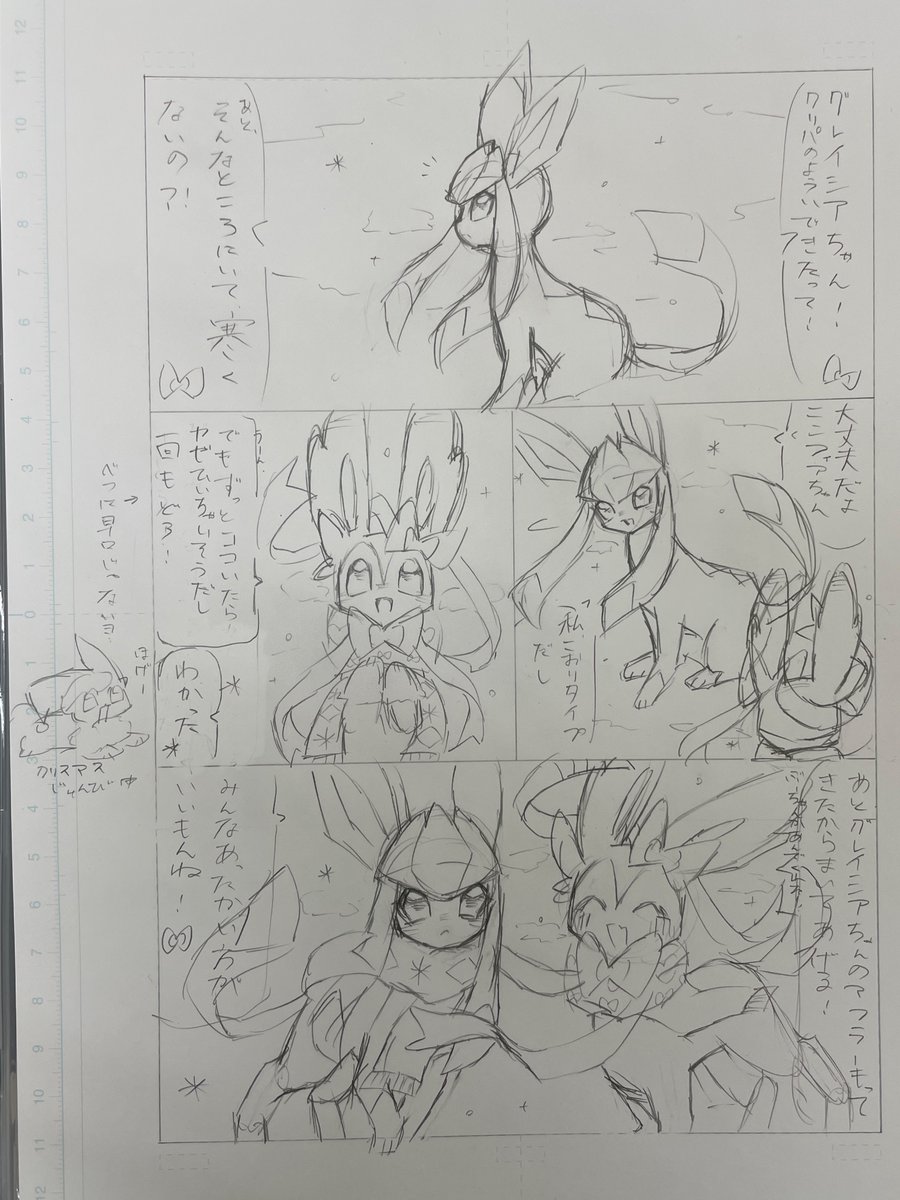 グレイシアちゃん!!
クリパのよういできたって!
あと、
そんなところにいて、寒く
ないの?!
大丈夫だよ
ニンフィアちゃん
私こおりタイプ
だし
うーん、
でもずっとココいたら
カゼひいちゃいそうだし
一回もどろ!
わかった
あとグレイシアちゃんのマフラーもって
きたからまいてあげる!
みんなあったかい方が
いいもんね!
べつに早口じゃないヨ
はげー
クリスマス
じゅんび中
12
11
10
9
8
7
6
5
4
3
2
1
0
1
2
3
4
5
6
7
8
9
10
11
12